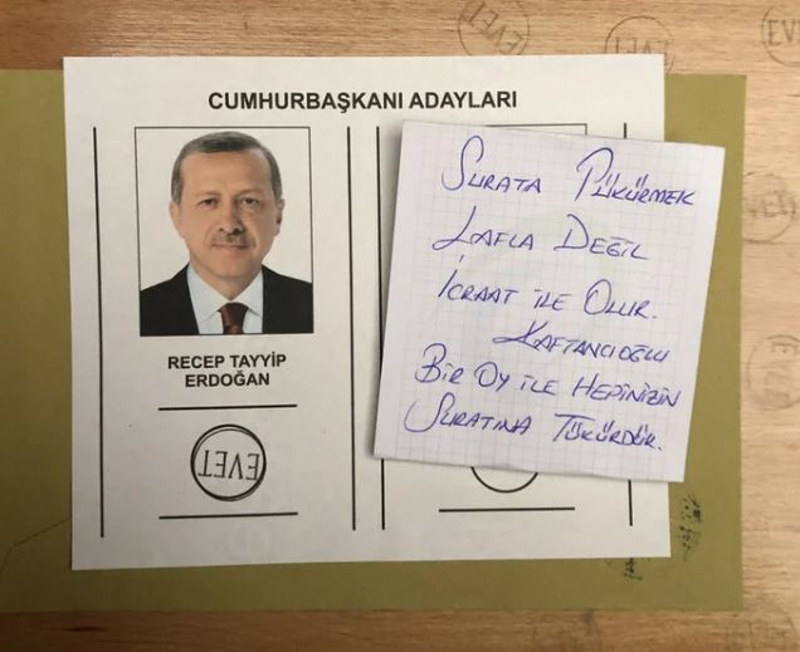 EVET
EVET
EV
CUMHURBAŞKANI ADAYLARI
RECEP TAYYİP
ERDOĞAN
EVET
SURATA TÜKÜRMEK
LAFLA DEĞİL
İCRAAT İLE OLUR.
KAFTANCIOĞLU
BİR OY İLE HEPİNİZİN
SURATINA TÜKÜRDÜR.
EVET